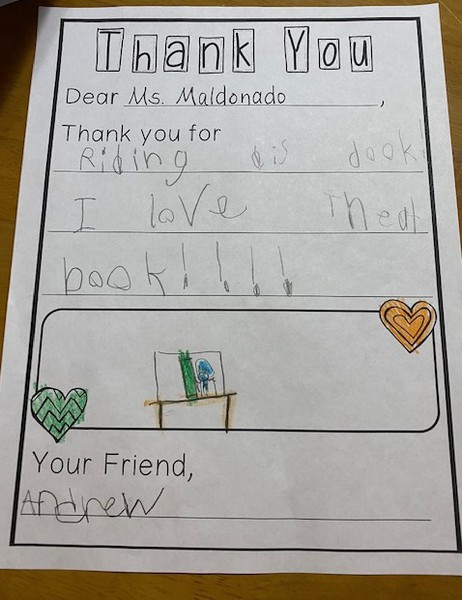 Thank You
Dear Ms. Maldonado,
Thank you for
Riding dis dook!
I love Theat
book!!!!
Your Friend,
Andrew